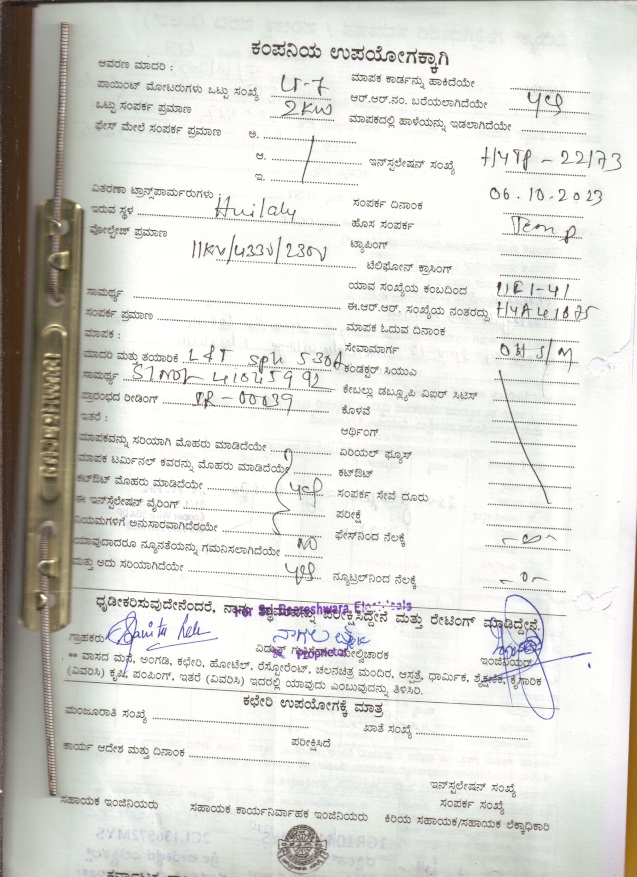 ಕಂಪನಿಯ ಉಪಯೋಗಕ್ಕಾಗಿ
ಆವರಣ ಮಾದರಿ :
ಮಾಪಕ ಕಾರ್ಡನ್ನು ಹಾಕಿದೆಯೇ
ಪಾಯಿಂಟ್ ಮೋಟರುಗಳು ಒಟ್ಟು ಸಂಖ್ಯೆ
ಆರ್.ಆರ್.ನಂ. ಬರೆಯಲಾಗಿದೆಯೇ yes
ಒಟ್ಟು ಸಂಪರ್ಕ ಪ್ರಮಾಣ 2KW
ಮಾಪಕದಲ್ಲಿ ಹಾಳೆಯನ್ನು ಇಡಲಾಗಿದೆಯೇ
ಫೇಸ್ ಮೇಲೆ ಸಂಪರ್ಕ ಪ್ರಮಾಣ ಅ.
ಆ. ಇನ್‌ಸ್ಟಲೇಷನ್ ಸಂಖ್ಯೆ HYTP - 22173
ಇ.
ವಿತರಣಾ ಟ್ರಾನ್ಸ್‌ಪಾರ್ಮರುಗಳು :
ಸಂಪರ್ಕ ದಿನಾಂಕ 06.10.2023
ಇರುವ ಸ್ಥಳ Huilalu
ಹೊಸ ಸಂಪರ್ಕ Temp
ವೋಲ್ಟೇಜ್ ಪ್ರಮಾಣ 11KV/433V/230V
ಟ್ಯಾಪಿಂಗ್
ಟೆಲಿಫೋನ್ ಕ್ರಾಸಿಂಗ್
ಯಾವ ಸಂಖ್ಯೆಯ ಕಂಬದಿಂದ
ಸಾಮರ್ಥ್ಯ
ಈ.ಆರ್.ಆರ್. ಸಂಖ್ಯೆಯ ನಂತರದ್ದು
ಸಂಪರ್ಕ ಪ್ರಮಾಣ
ಮಾಪಕ ಓದುವ ದಿನಾಂಕ
ಮಾಪಕ :
ಸೇವಾಮಾರ್ಗ OH S/M
ಮಾದರಿ ಮತ್ತು ತಯಾರಿಕೆ L&T sph 530A
ಕಂಡಕ್ಟರ್ ಸಿಯುಎ
ಸಾಮರ್ಥ್ಯ Sl No:- 41045992
ಕೇಬಲ್ಲು ಡಬ್ಲ್ಯೂಪಿ ಎಐರ್ ಸಿಟಿಸ್
ಪ್ರಾರಂಭದ ರೀಡಿಂಗ್ IR - 00039
ಕೊಳವೆ
ಇತರೆ :
ಆರ್ಥಿಂಗ್
ಮಾಪಕವನ್ನು ಸರಿಯಾಗಿ ಮೊಹರು ಮಾಡಿದೆಯೇ
ಏರಿಯಲ್ ಫ್ಯೂಸ್
ಮಾಪಕ ಟರ್ಮಿನಲ್ ಕವರನ್ನು ಮೊಹರು ಮಾಡಿದೆಯೇ
ಕಟ್‌ಔಟ್
ಕಟ್‌ಔಟ್ ಮೊಹರು ಮಾಡಿದೆಯೇ yes
ಸಂಪರ್ಕ ಸೇವೆ ದೂರು
ಈ ಇನ್‌ಸ್ಟಲೇಷನ್ ವೈರಿಂಗ್
ಪರೀಕ್ಷೆ
ನಿಯಮಗಳಿಗೆ ಅನುಸಾರವಾಗಿದೆರಯೇ
ಫೇಸ್‌ನಿಂದ ನೆಲಕ್ಕೆ
ಯಾವುದಾದರೂ ನ್ಯೂನತೆಯನ್ನು ಗಮನಿಸಲಾಗಿದೆಯೇ NO
ಮತ್ತು ಅದು ಸರಿಯಾಗಿದೆಯೇ yes
ನ್ಯೂಟ್ರಲ್‌ನಿಂದ ನೆಲಕ್ಕೆ -0-
ಧೃಡೀಕರಿಸುವುದೇನೆಂದರೆ, ನಾನು ಸ್ಥಾವರವನ್ನು ಪರೀಕ್ಷಿಸಿದ್ದೇನೆ ಮತ್ತು ರೇಟಿಂಗ್ ಮಾಡಿದ್ದೇನೆ.
For Sri Beereshwara Electricals
ಗ್ರಾಹಕರು
ಮೇಲ್ವಿಚಾರಕ
ಇಂಜಿನಿಯರ್
Proprietor
** ವಾಸದ ಮನೆ, ಅಂಗಡಿ, ಕಛೇರಿ, ಹೋಟೆಲ್, ರೆಸ್ಟೋರೆಂಟ್, ಚಲನಚಿತ್ರ ಮಂದಿರ, ಆಸ್ಪತ್ರೆ, ಧಾರ್ಮಿಕ, ಶೈಕ್ಷಣಿಕ, ಕೈಗಾರಿಕ
(ವಿವರಿಸಿ) ಕೃಷಿ, ಪಂಪಿಂಗ್, ಇತರೆ (ವಿವರಿಸಿ) ಇದರಲ್ಲಿ ಯಾವುದು ಎಂಬುವುದನ್ನು ತಿಳಿಸಿರಿ.
ಕಛೇರಿ ಉಪಯೋಗಕ್ಕೆ ಮಾತ್ರ
ಮಂಜೂರಾತಿ ಸಂಖ್ಯೆ
ಖಾತೆ ಸಂಖ್ಯೆ
ಪರೀಕ್ಷಿಸಿದೆ
ಕಾರ್ಯ ಆದೇಶ ಮತ್ತು ದಿನಾಂಕ
ಇನ್‌ಸ್ಟಲೇಷನ್ ಸಂಖ್ಯೆ
ಸಂಪರ್ಕ ಸಂಖ್ಯೆ
ಸಹಾಯಕ ಇಂಜಿನಿಯರು
ಸಹಾಯಕ ಕಾರ್ಯನಿರ್ವಾಹಕ ಇಂಜಿನಿಯರು
ಕಿರಿಯ ಸಹಾಯಕ/ಸಹಾಯಕ ಲೆಕ್ಕಾಧಿಕಾರಿ